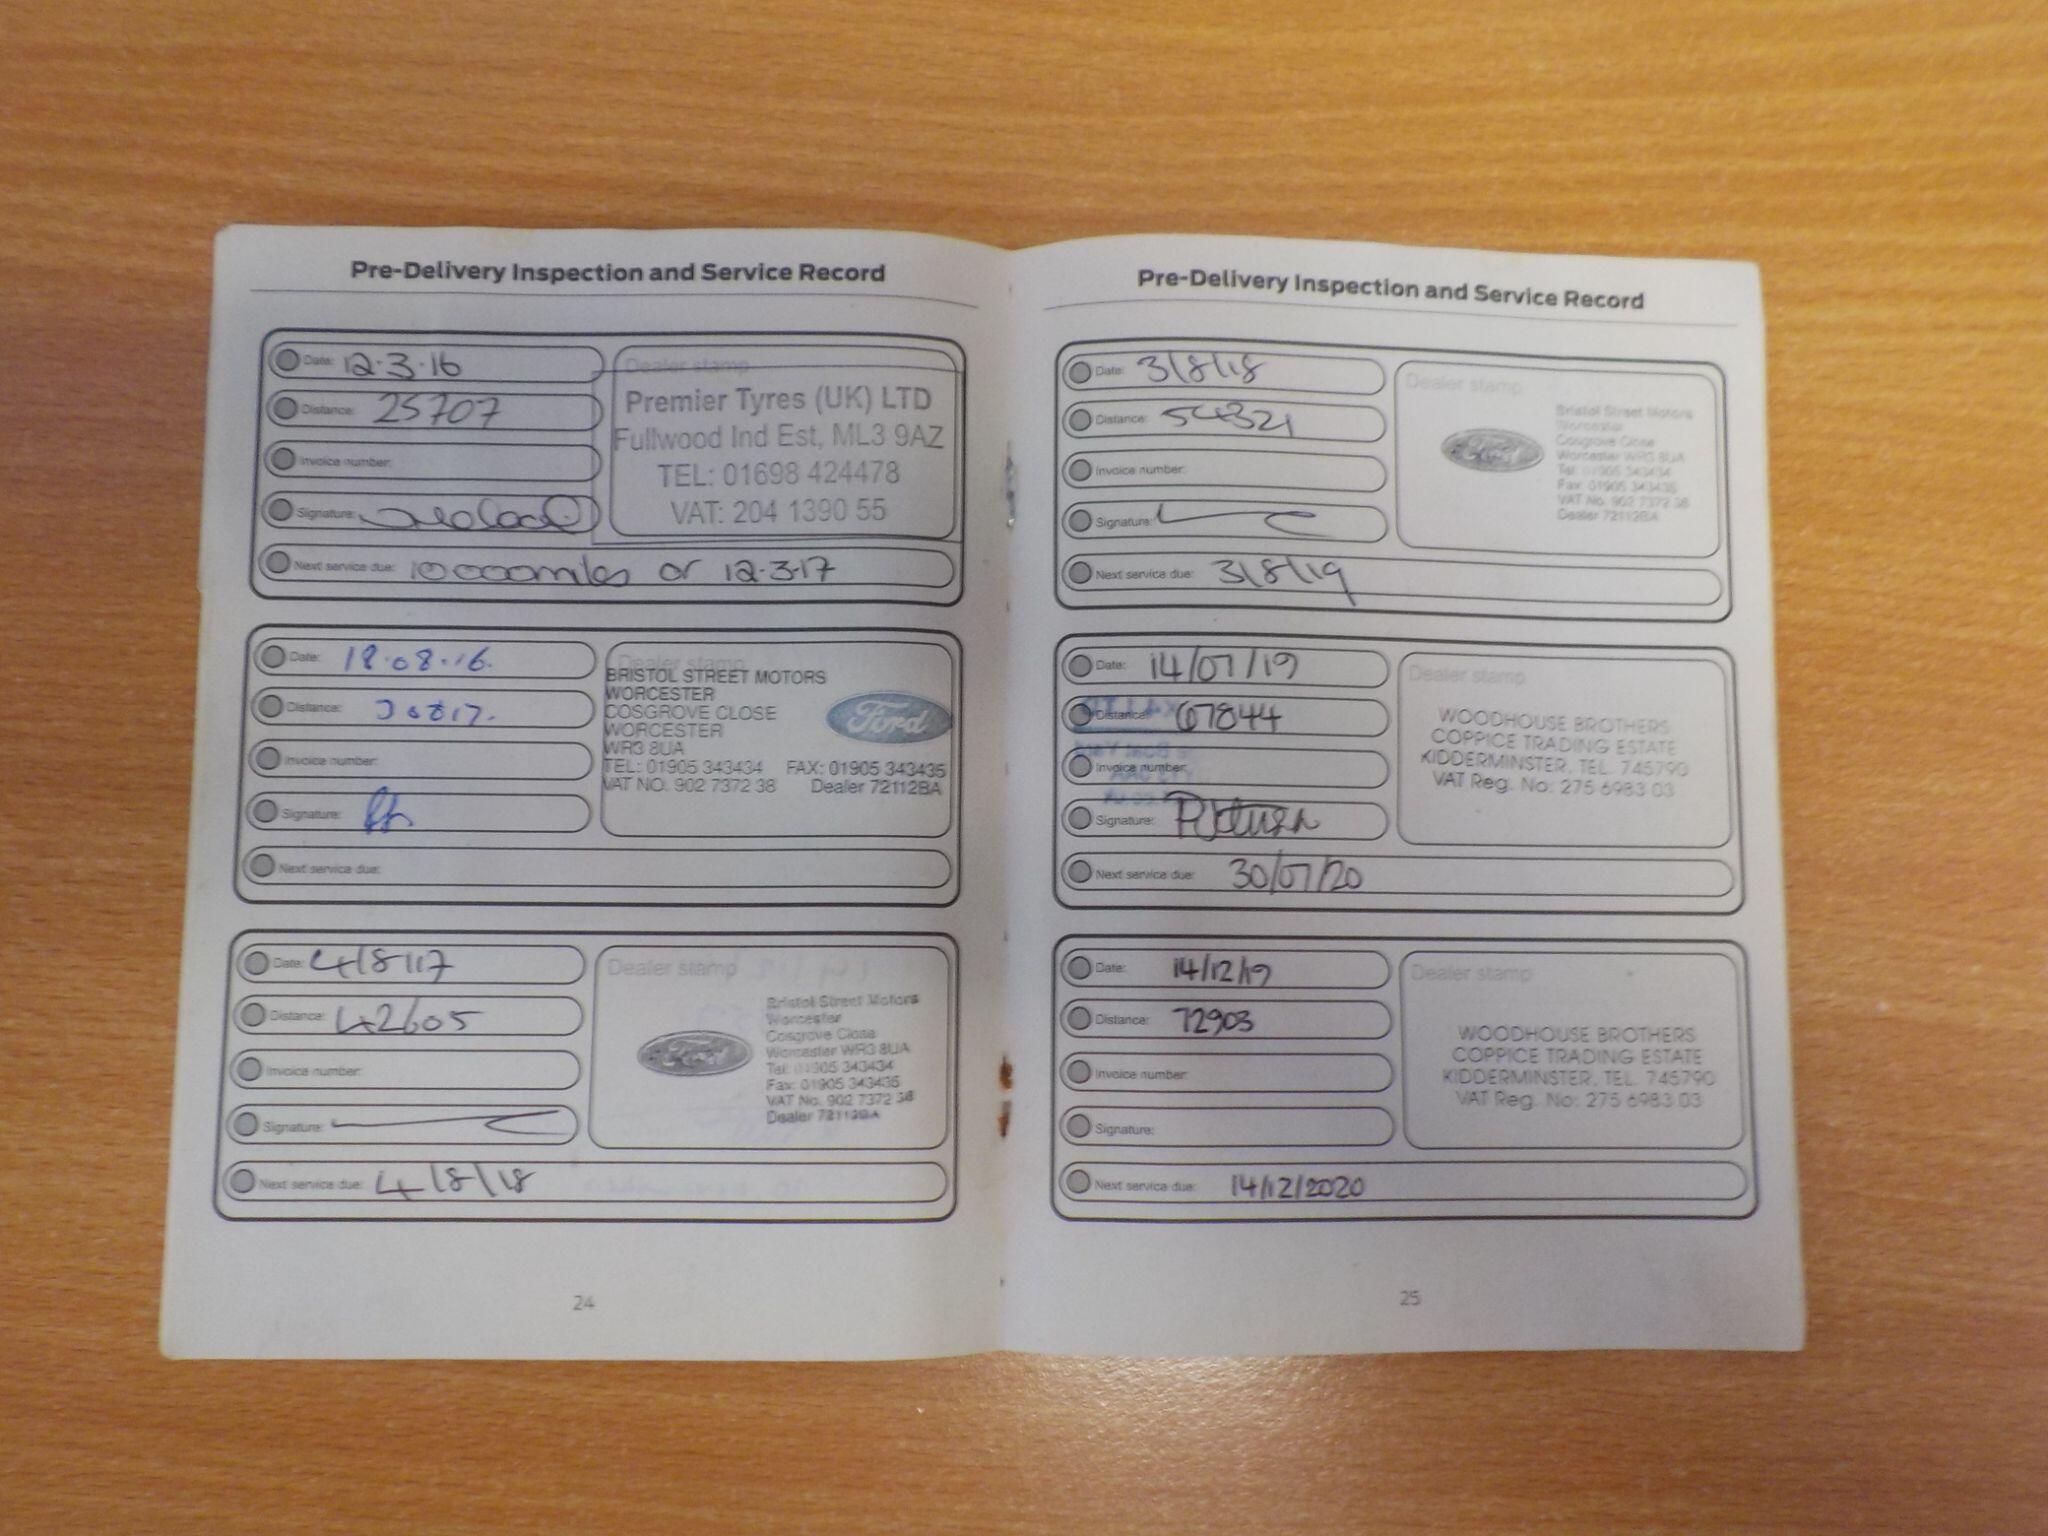 Pre-Delivery Inspection and Service Record
Date: 12.3.16
Distance: 25707
Invoice number:
Signature:
Next service due: 10000miles or 12.3.17
Dealer stamp
Premier Tyres (UK) LTD
Fullwood Ind Est, ML3 9AZ
TEL: 01698 424478
VAT: 204 1390 55
Date: 18.08.16.
Distance: 30817.
Invoice number:
Signature:
Next service due:
Dealer stamp
BRISTOL STREET MOTORS
WORCESTER
COSGROVE CLOSE
WORCESTER
WR3 8UA
TEL: 01905 343434 FAX: 01905 343435
VAT NO. 902 7372 38 Dealer 72112BA
Ford
Date: 4/8/17
Distance: 42605
Invoice number:
Signature:
Next service due: 4/8/18
Dealer stamp
Ford
Bristol Street Motors
Worcester
Cosgrove Close
Worcester WR3 8UA
Tel: 01905 343434
Fax: 01905 343435
VAT No. 902 7372 38
Dealer 72112BA
24
Pre-Delivery Inspection and Service Record
Date: 3/8/18
Distance: 54321
Invoice number:
Signature:
Next service due: 3/8/19
Dealer stamp
Ford
Bristol Street Motors
Worcester
Cosgrove Close
Worcester WR3 8UA
Tel: 01905 343434
Fax: 01905 343435
VAT No. 902 7372 38
Dealer 72112BA
Date: 14/07/19
Distance: 67844
Invoice number:
Signature:
Next service due: 30/07/20
Dealer stamp
WOODHOUSE BROTHERS
COPPICE TRADING ESTATE
KIDDERMINSTER, TEL. 745790
VAT Reg. No: 275 6983 03
Date: 14/12/19
Distance: 72903
Invoice number:
Signature:
Next service due: 14/12/2020
Dealer stamp
WOODHOUSE BROTHERS
COPPICE TRADING ESTATE
KIDDERMINSTER, TEL. 745790
VAT Reg. No: 275 6983 03
25